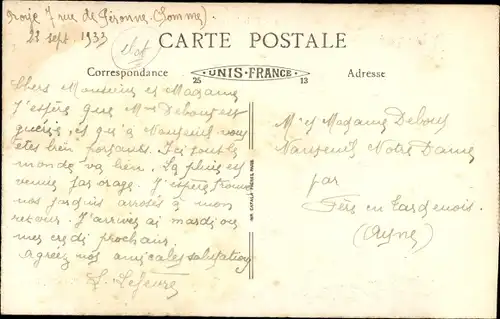 7 rue de Péronne (Somme)
23 sept. 1933
CARTE POSTALE
Correspondance
25 UNIS-FRANCE 13
Adresse
Chers Monsieur et Madame
J'espère que Mme Debouf est
guérie, et qu'à Nanteuil vous
êtes bien portants. Ici tout le
monde va bien. La pluie est
venue par orage. J'espère trouver
nos jardins arrosés à mon
retour. J'arriverai mardi ou
mercredi prochain
Agréez nos amicales salutations
L. Lefeuvre
Mr et Madame Debouf
Nanteuil Notre Dame
par
Fère en Tardenois
(Aisne)